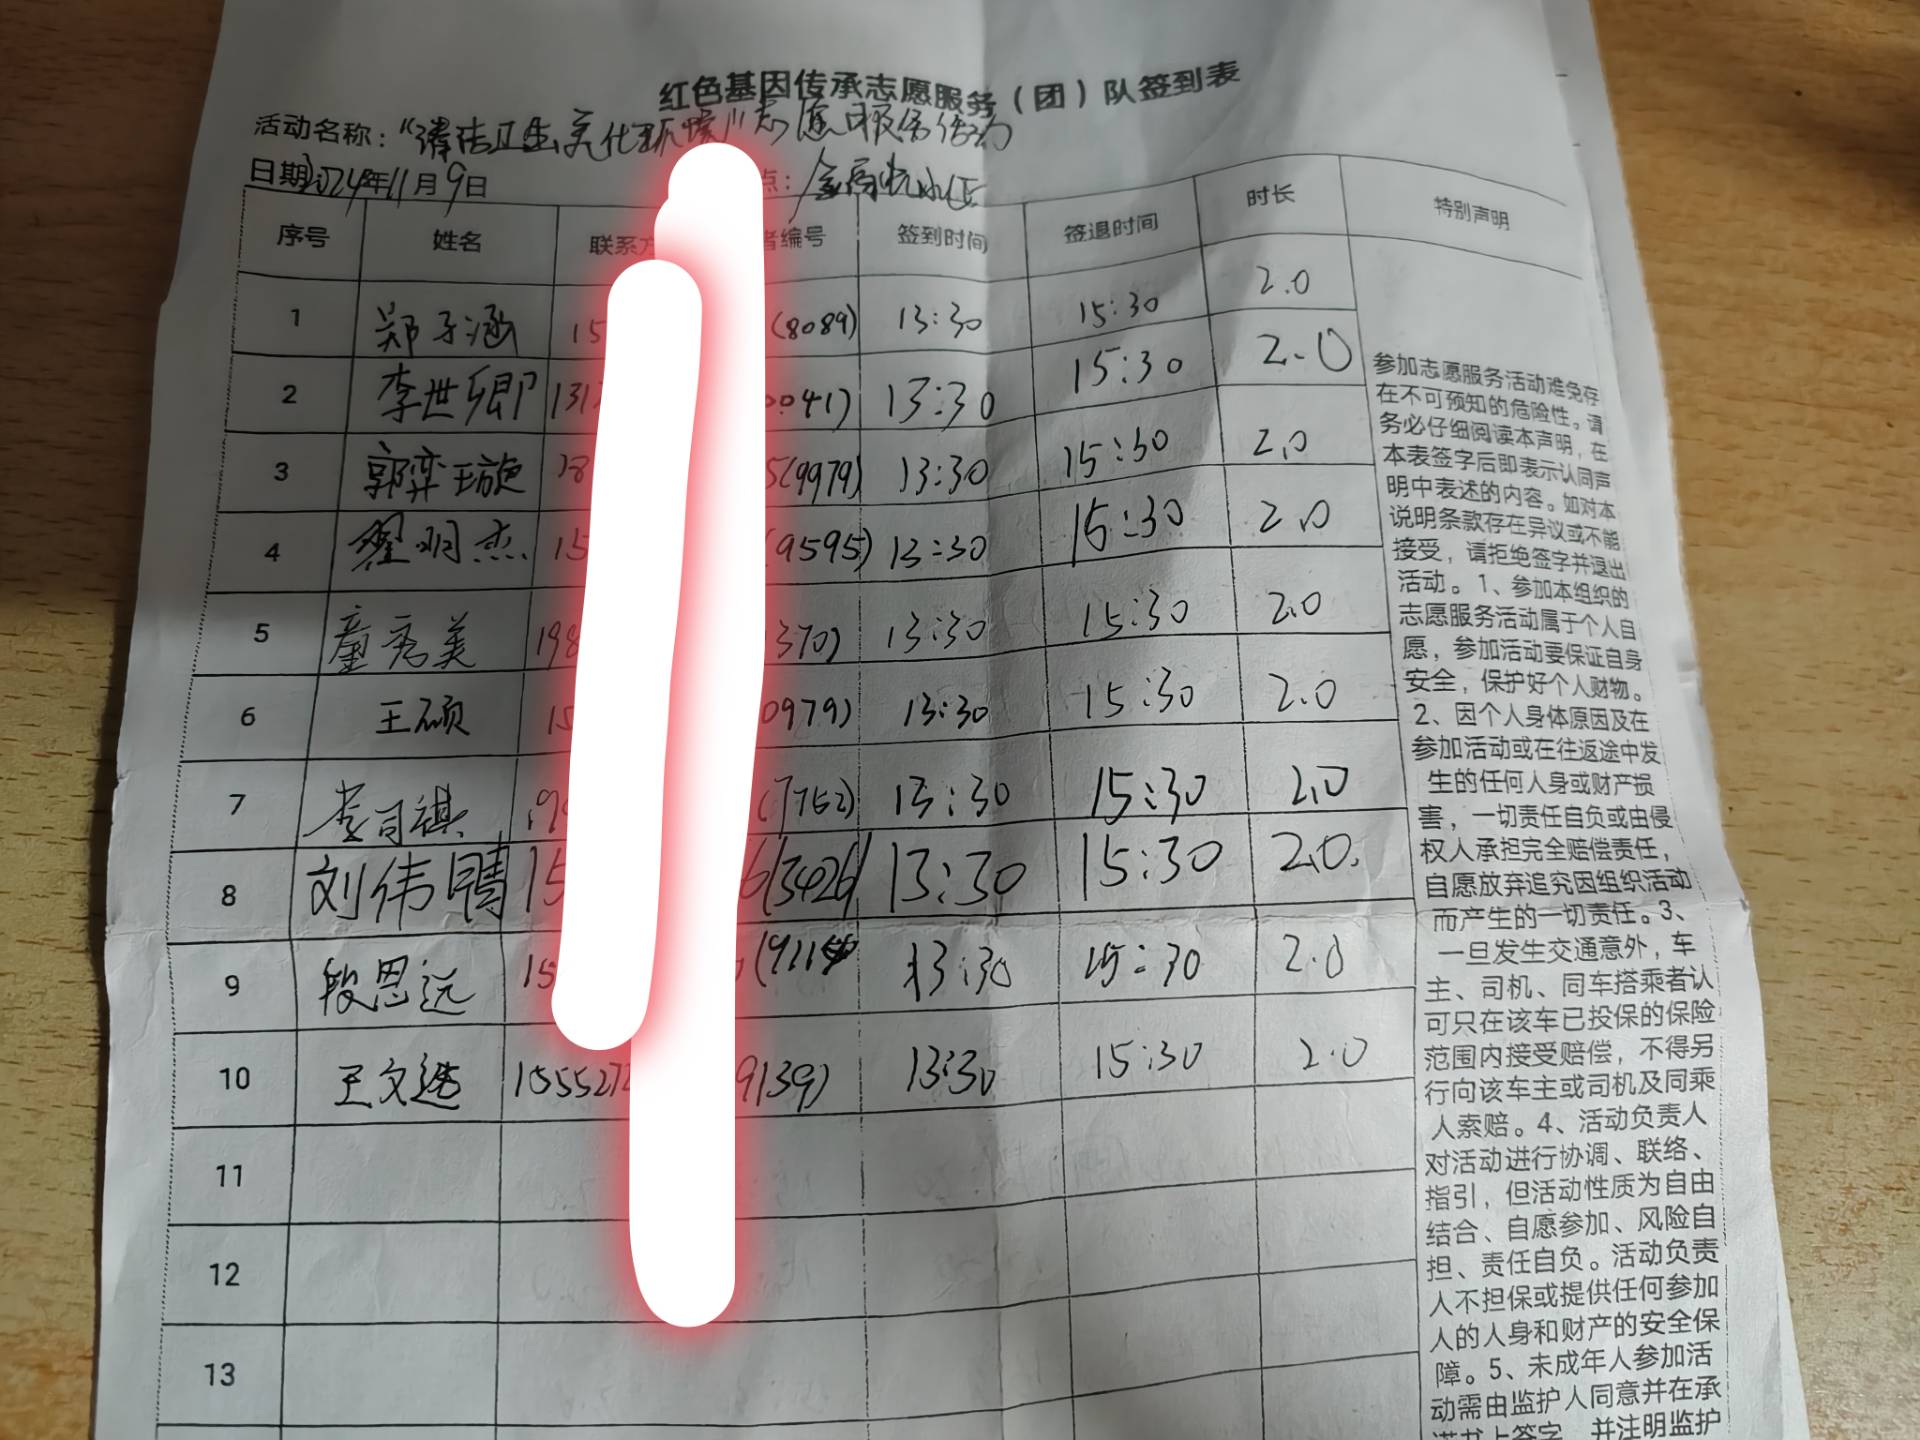 红色基因传承志愿服务（团）队签到表
活动名称：“清洁卫生美化环境”志愿服务活动
日期2024年11月9日 点：
序号 姓名 联系方 者编号 签到时间 签退时间 时长 特别声明
1 郑子涵 15 (8089) 13:30 15:30 2.0
2 李世卿 131 0041) 13:30 15:30 2.0
3 郭弈王旋 18 5(9979) 13:30 15:30 2.0
4 翟明杰 15 (9595) 13:30 15:30 2.0
5 童秀美 198 370) 13:30 15:30 2.0
6 王硕 15 0979) 13:30 15:30 2.0
7 李司祺 19 (7762) 13:30 15:30 2.0
8 刘伟晴 15 6(3426) 13:30 15:30 2.0.
9 段思远 15 (911 13:30 15:30 2.0
10 王文选 1555272 9139) 13:30 15:30 2.0
11
12
13
参加志愿服务活动难免存
在不可预知的危险性。请
务必仔细阅读本声明，在
本表签字后即表示认同声
明中表述的内容。如对本
说明条款存在异议或不能
接受，请拒绝签字并退出
活动。1、参加本组织的
志愿服务活动属于个人自
愿，参加活动要保证自身
安全，保护好个人财物。
2、因个人身体原因及在
参加活动或在往返途中发
生的任何人身或财产损
害，一切责任自负或由侵
权人承担完全赔偿责任，
自愿放弃追究因组织活动
而产生的一切责任。3、
一旦发生交通意外，车
主、司机、同车搭乘者认
可只在该车已投保的保险
范围内接受赔偿，不得另
行向该车主或司机及同乘
人索赔。4、活动负责人
对活动进行协调、联络、
指引，但活动性质为自由
结合、自愿参加、风险自
担、责任自负。活动负责
人不担保或提供任何参加
人的人身和财产的安全保
障。5、未成年人参加活
动需由监护人同意并在承
诺书上签字，并注明监护